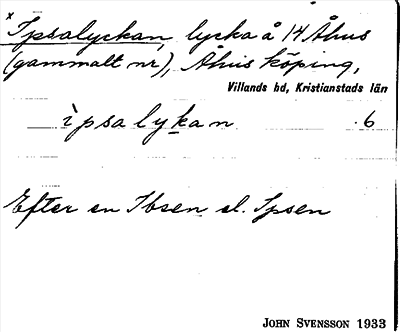 × Ipsalyckan, lycka å 14 Åhus
(gammalt nr), Åhus köping,
Villands hd, Kristianstads län
ìpsalykan 6
Efter en Ibsen el. Ipsen
JOHN SVENSSON 1933